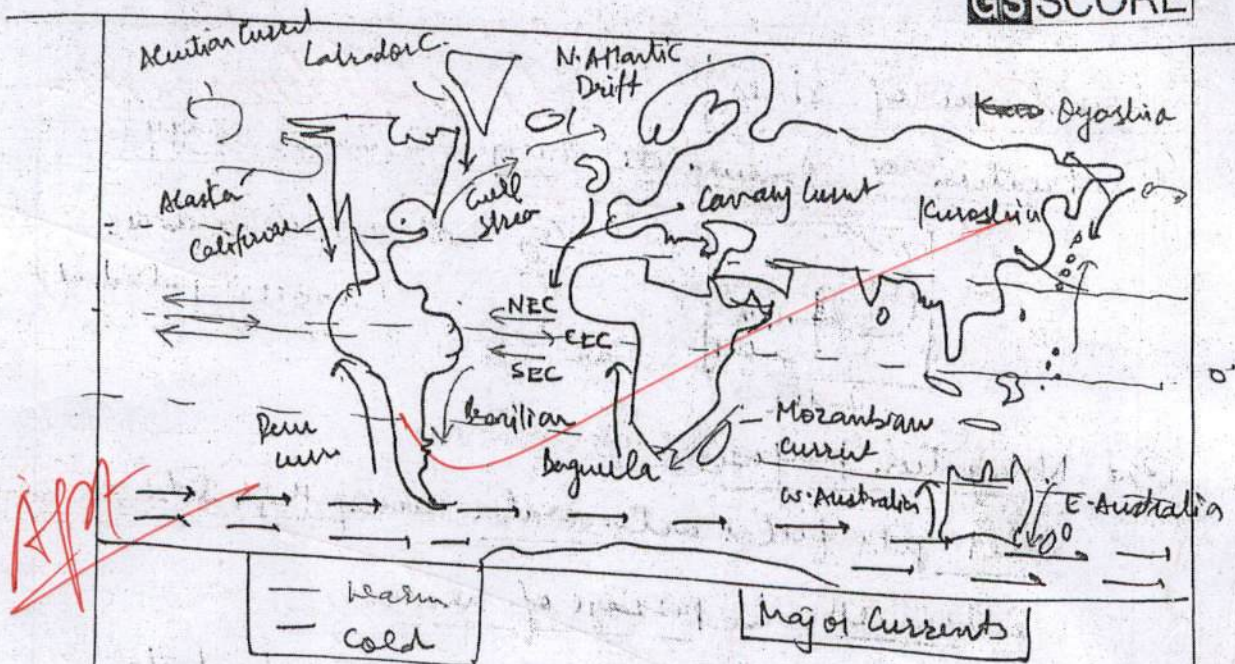 GS SCORE
Aleutian Current
Labrador C.
N. Atlantic
Drift
Oyashia
Alaska
Californ
Gulf
Strea
Canary Current
Kuroshia
NEC
EEC
SEC
0°
Peru
curr
Brazilian
Benguela
Mozambian
Current
W. Australia
E. Australia
Warm
Cold
Major Currents